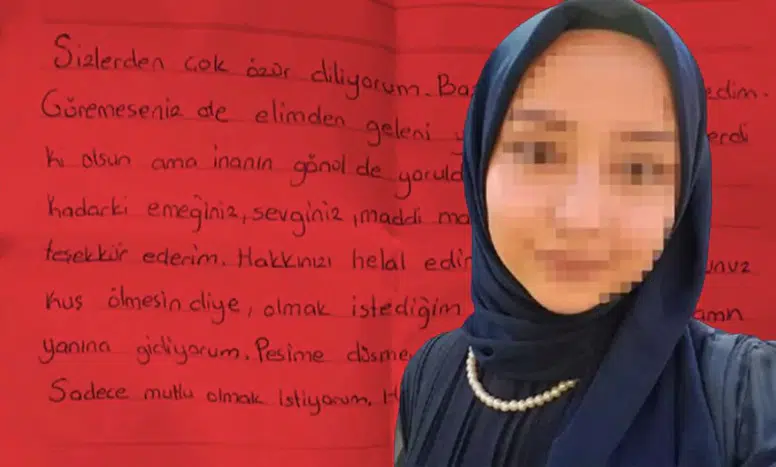 Sizlerden çok özür diliyorum. Ba edim.
Göremeseniz de elimden geleni y erdi
ki olsun ama inanın gönol de yoruld
kadarki emeğiniz, sevginiz, maddi ma
teşekkür ederim. Hakkınızı helal edin unuz
kuş ölmesin diye, olmak istediğim amın
yanına gidiyorum. Peşime düşme
Sadece mutlu olmak istiyorum. H